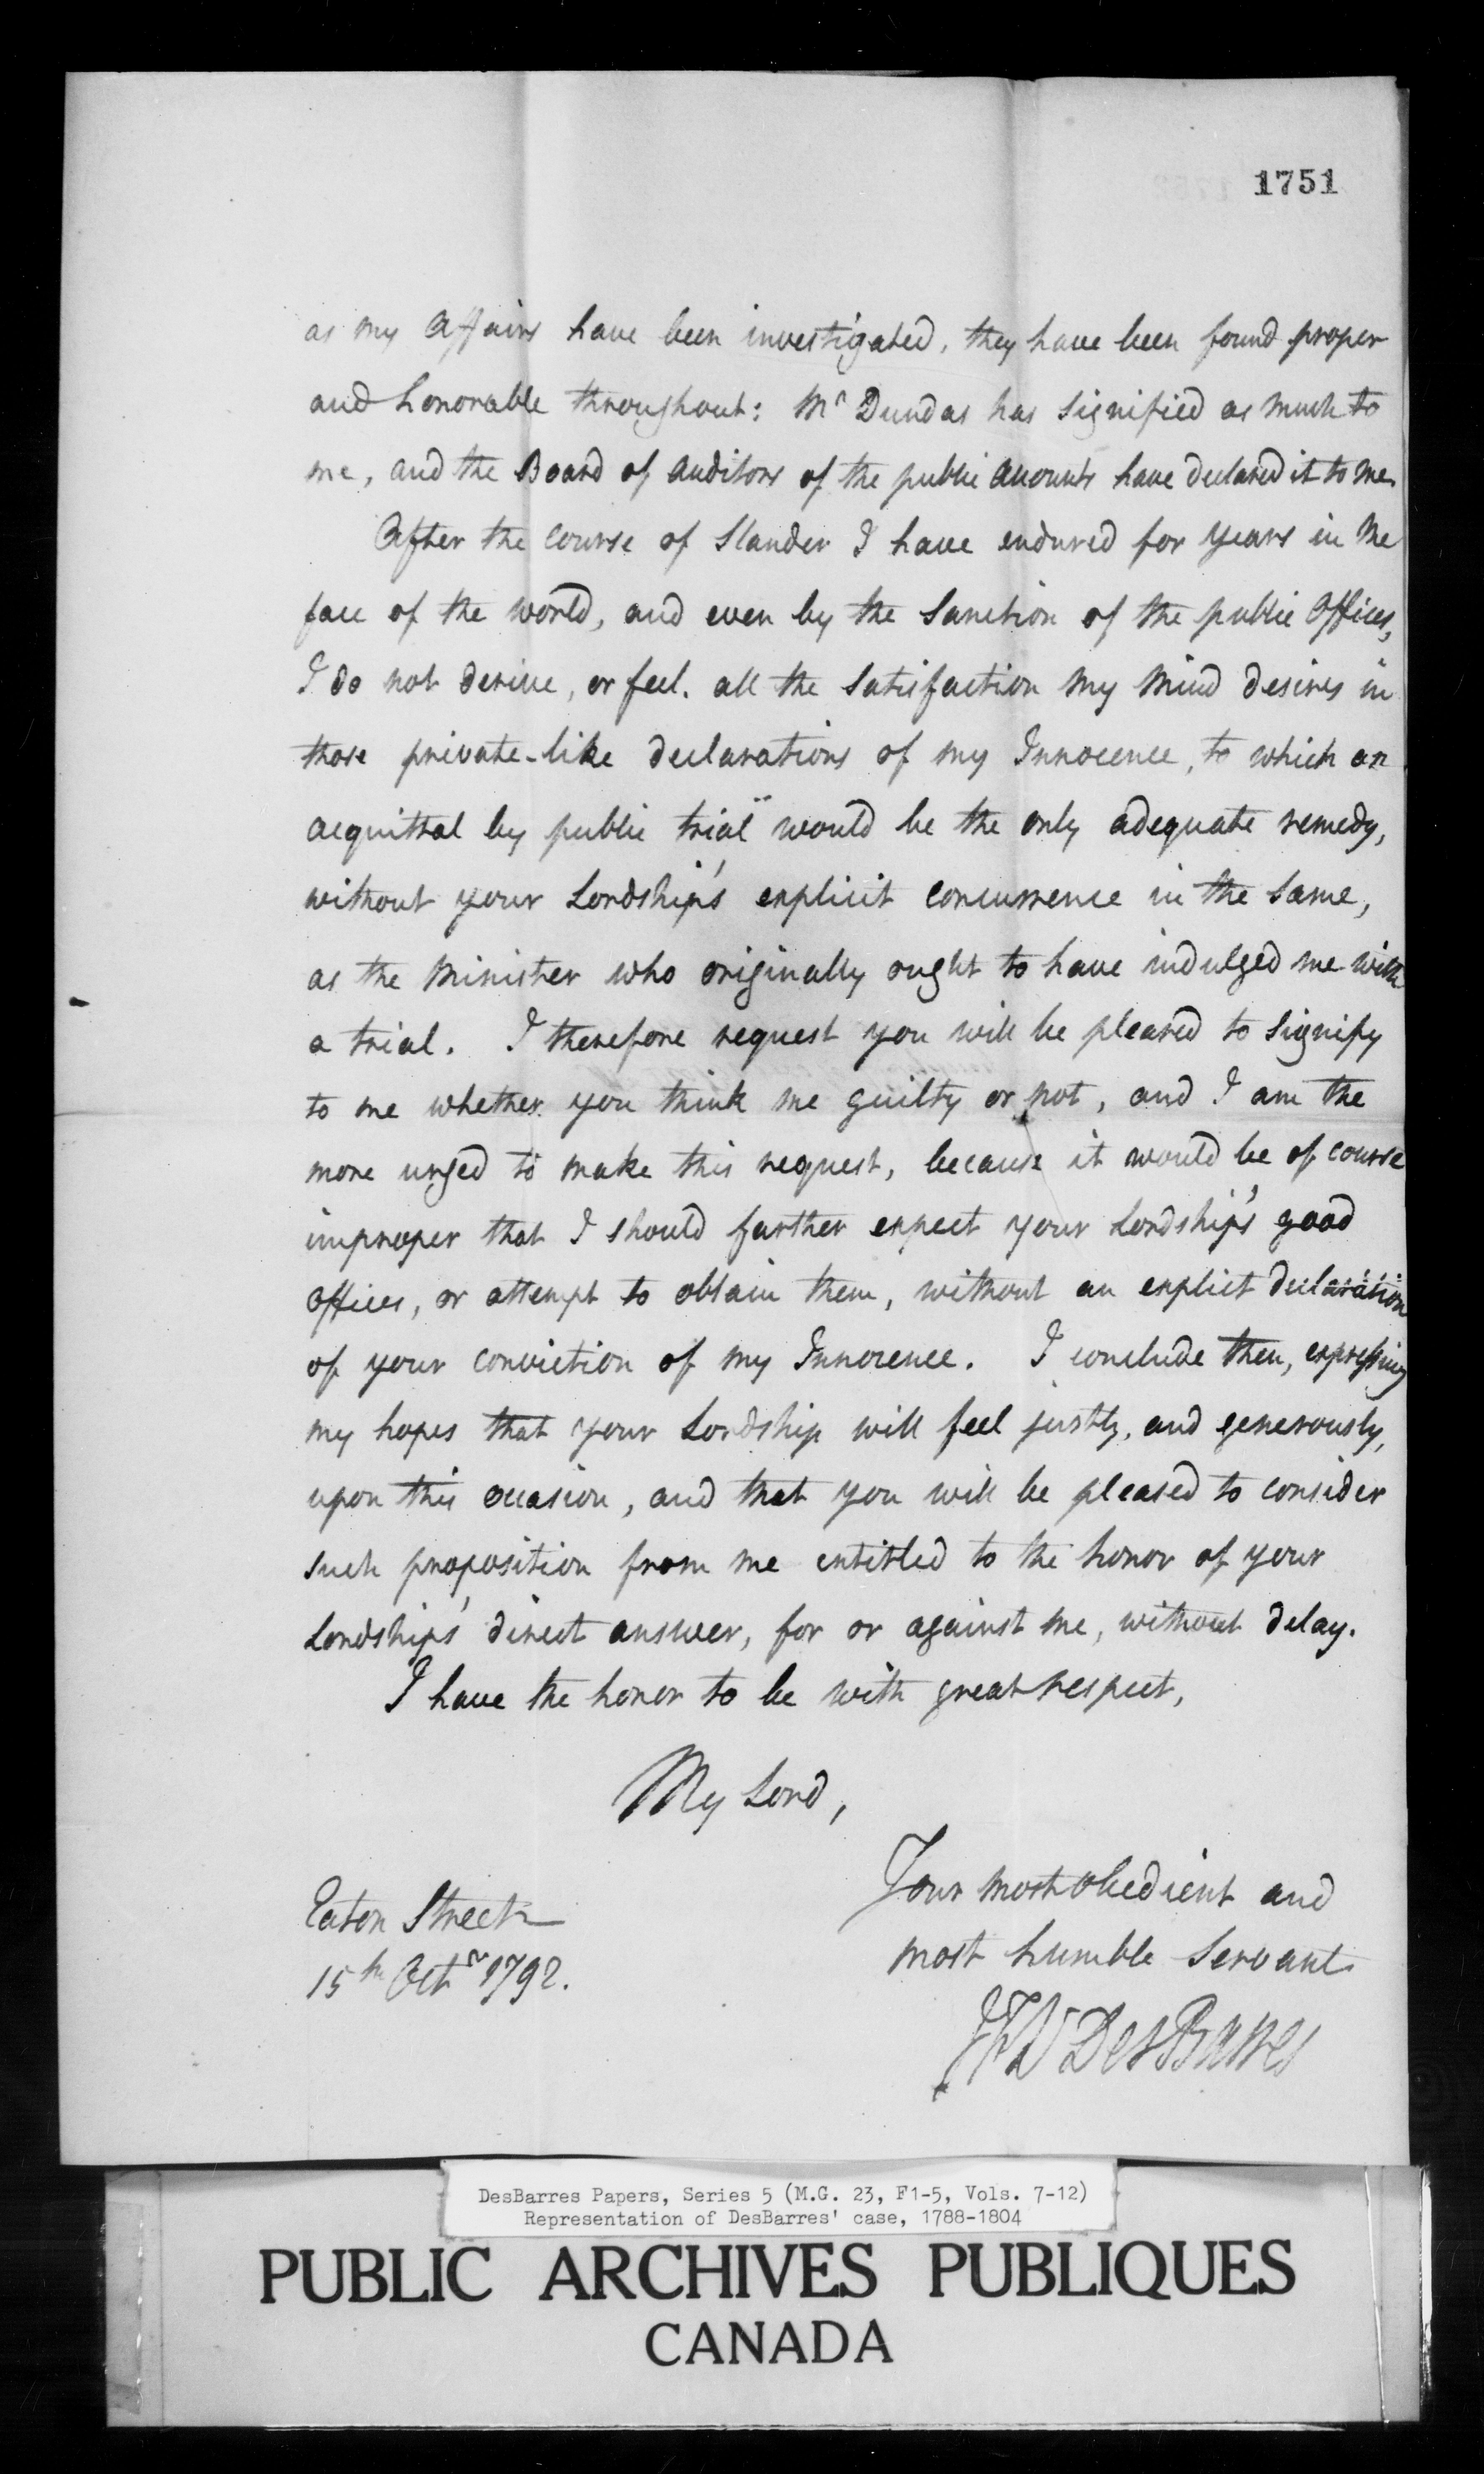 1751
as my Affairs have been investigated, they have been found proper
and honorable throughout: Mr Dundas has signified as much to
me, and the Board of Auditors of the public Accounts have declared it to me.
After the course of Slander I have endured for years in the
face of the world, and even by the Sanction of the public Offices,
I do not derive, or feel, all the Satisfaction my Mind desires in
those private-like declarations of my Innocence, to which an
acquittal by public trial would be the only adequate remedy,
without your Lordship's explicit concurrence in the same,
as the Minister who originally ought to have indulged me with
a trial. I therefore request you will be pleased to signify
to me whether you think me guilty or not, and I am the
more urged to make this request, because it would be of course
improper that I should further expect your Lordship's good
offices, or attempt to obtain them, without an explicit declaration
of your conviction of my Innocence. I conclude then, expressing
my hopes that your Lordship will feel justly, and generously,
upon this occasion, and that you will be pleased to consider
such proposition from me entitled to the honor of your
Lordship's direct answer, for or against me, without delay.
I have the honor to be with great respect,
My Lord,
Your most obedient and
most humble Servant
JFW DesBarres
Eaton Street
15th Octr 1792.
DesBarres Papers, Series 5 (M.G. 23, F1-5, Vols. 7-12)
Representation of DesBarres' case, 1788-1804
PUBLIC ARCHIVES PUBLIQUES
CANADA